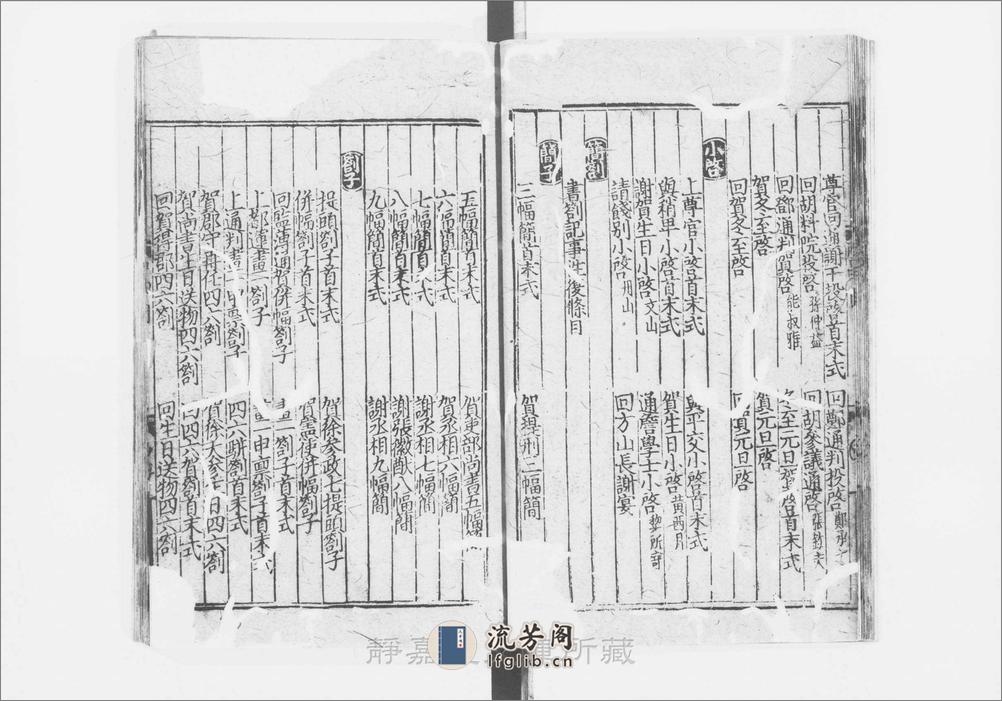 尊官同通謝干投啓首末式 回鄭通判投啓
回胡料院投啓 張仲益 回胡參議通啓
回鄧通判賀啓 熊叔雅 冬至元旦啓首末式
賀冬至啓 賀元旦啓
回賀冬至啓 回賀元旦啓
小啓
上尊官小啓首末式 與平交小啓首末式
與稍卑小啓首末式 賀生日小啓
謝賀生日小啓 文山 通詹學士小啓
請餞別小啓 胡山 回方山長謝宴
簡劄
書劄記事往復條目
簡子
三幅簡首末式 賀提刑三幅簡
五幅簡首末式 尚書五幅簡
六幅簡首末式 賀丞相六幅簡
七幅簡首末式 謝丞相七幅簡
八幅簡首末式 謝張徽猷八幅簡
九幅簡首末式 謝丞相九幅簡
劄子
提頭劄子首末式 賀徐參政七提頭劄子
併幅劄子首末式 併幅劄子
回 併幅劄子 畫一劄子首末式
上 運畫一劄子 申稟劄子首末式
上通判畫一申稟劄子 四六駢劄首末式
賀郡守再任四六劄 賀徐大參 日四六劄
賀尚書生日送物四六劄 回四六賀劄首末式
回賀得郡四六劄 回生日送物四六劄
靜嘉 所藏
流芳阁
lfglib.cn